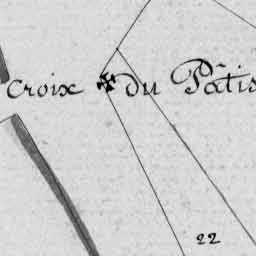 Croix du Pâtis
22